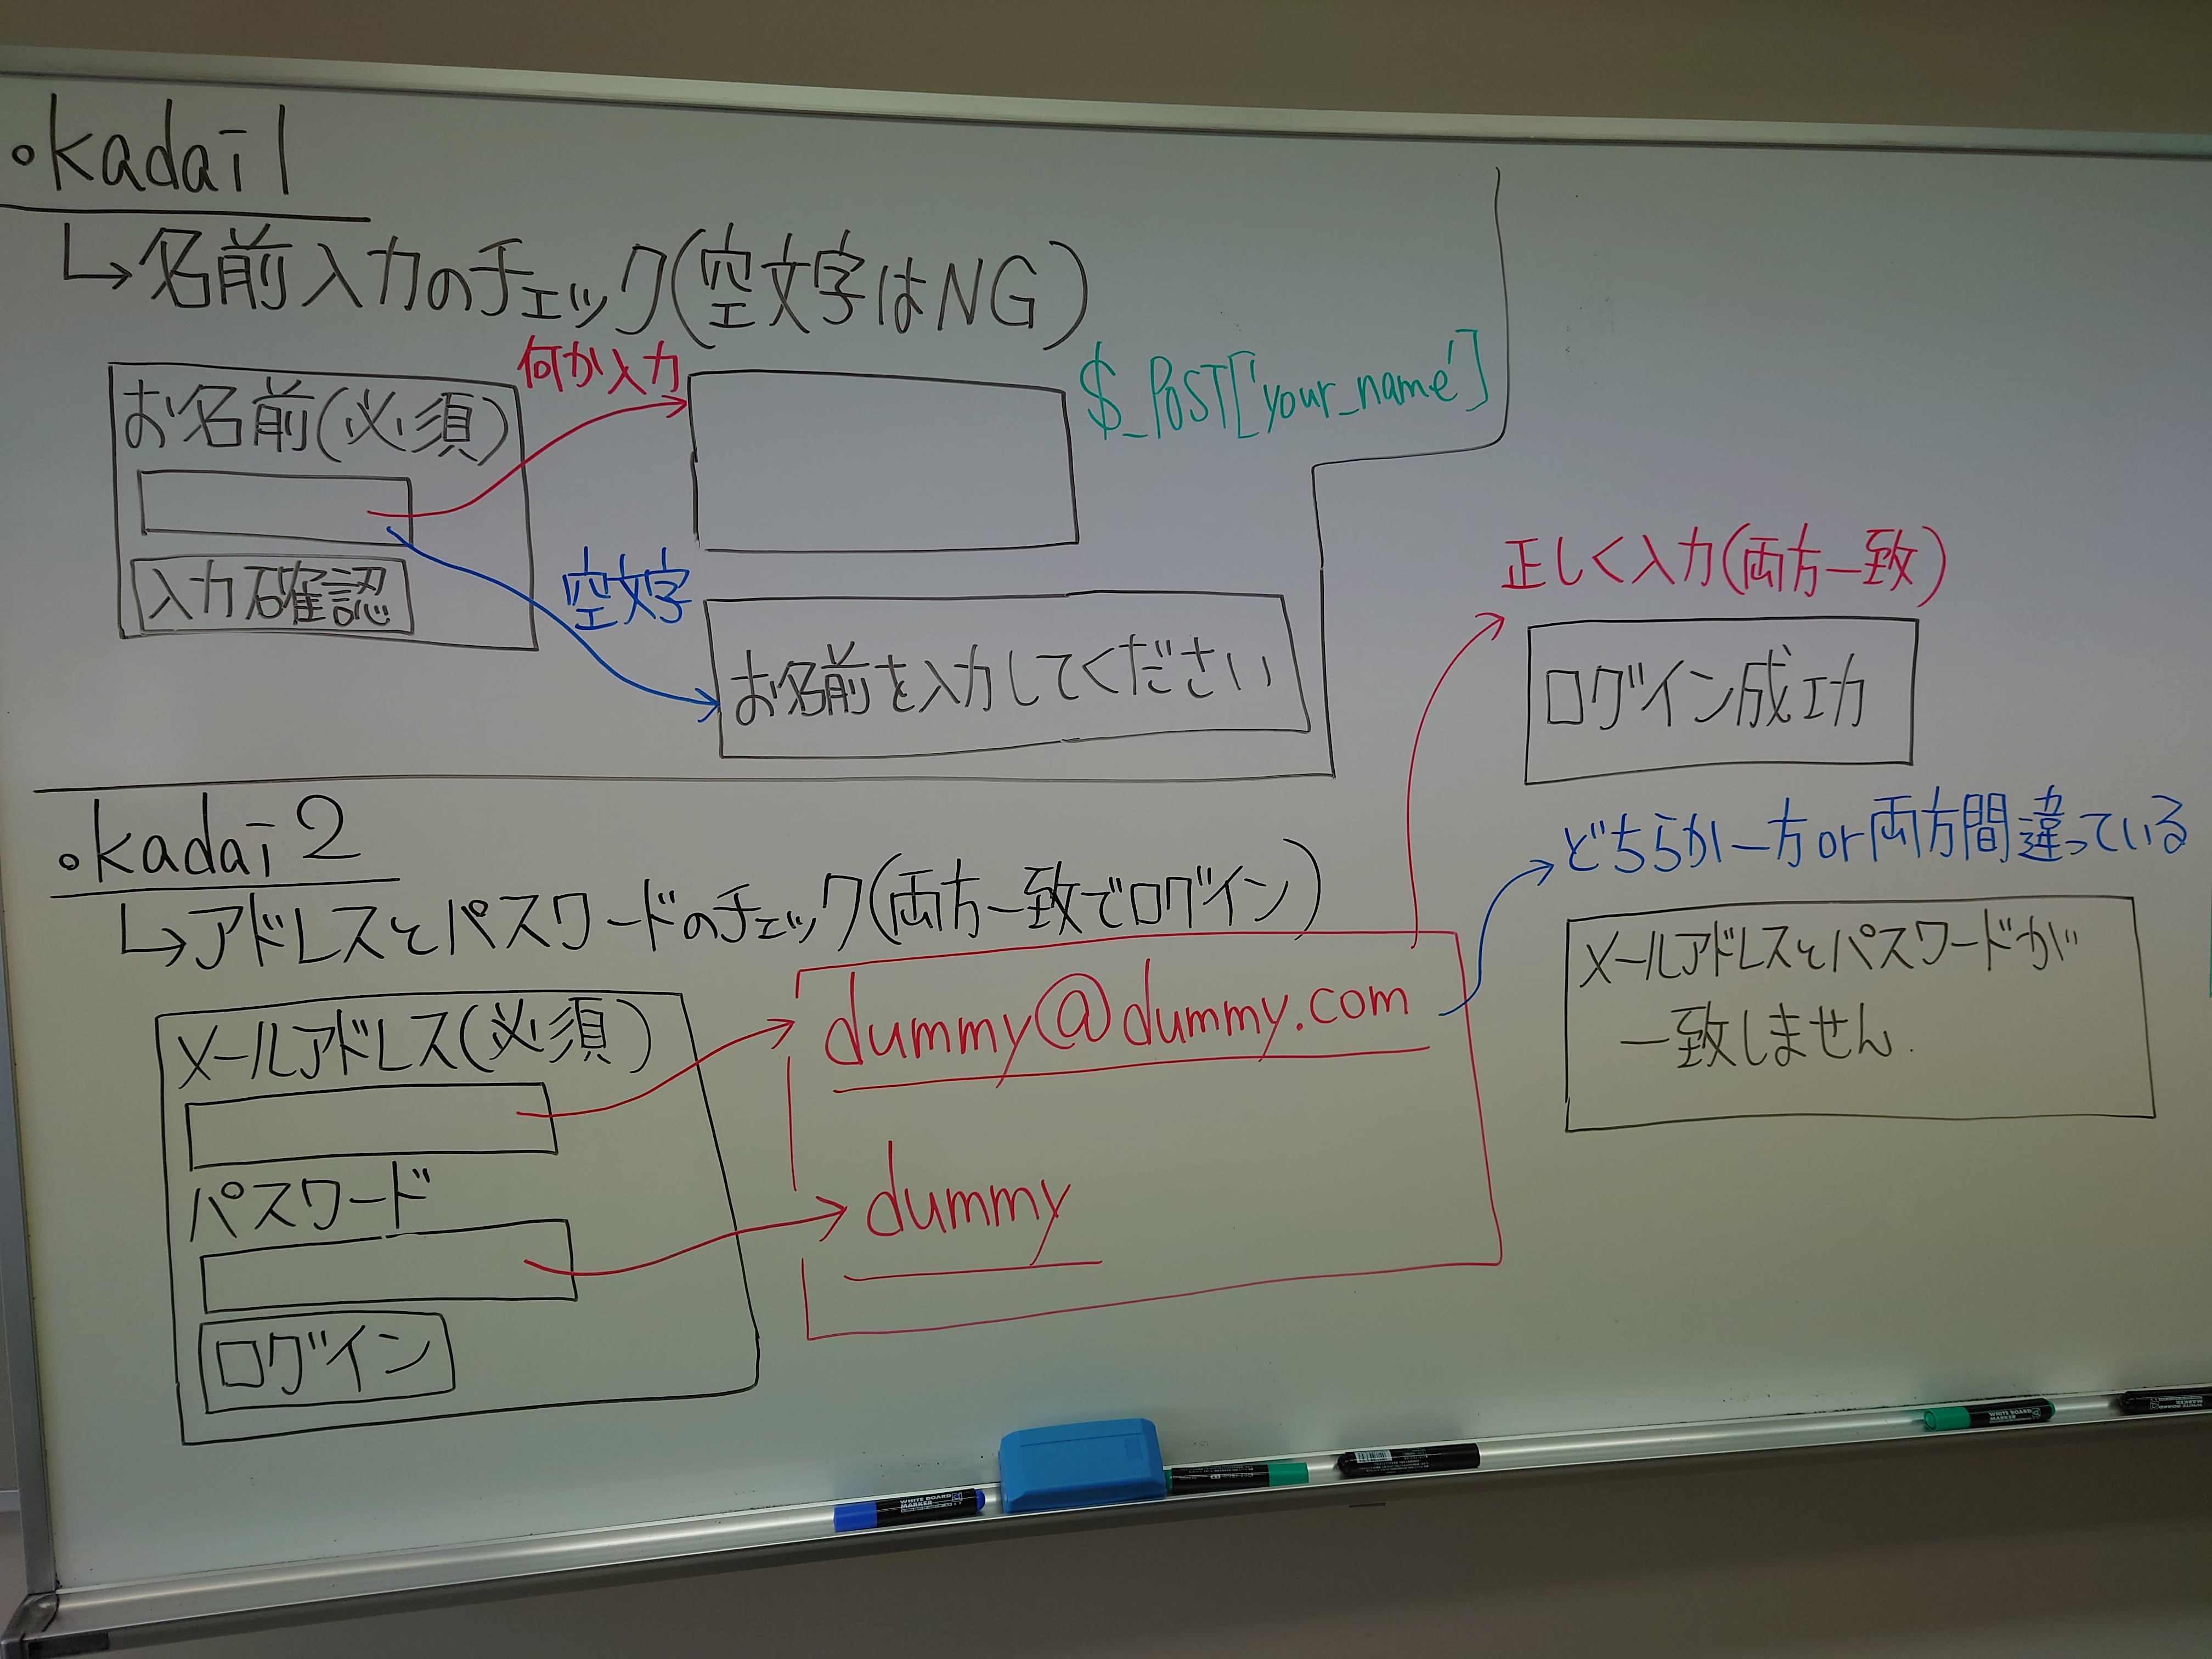 ・kadai1
↳名前入力のチェック(空文字はNG)
お名前(必須)
入力確認
何か入力
$_POST['your_name']
空文字
お名前を入力してください
・kadai2
↳アドレスとパスワードのチェック(両方一致でログイン)
メールアドレス(必須)
パスワード
ログイン
dummy@dummy.com
dummy
正しく入力(両方一致)
ログイン成功
どちらか一方or両方間違っている
メールアドレスとパスワードが
一致しません.
WHITE BOARD
MARKER
WHITE BOARD
MARKER